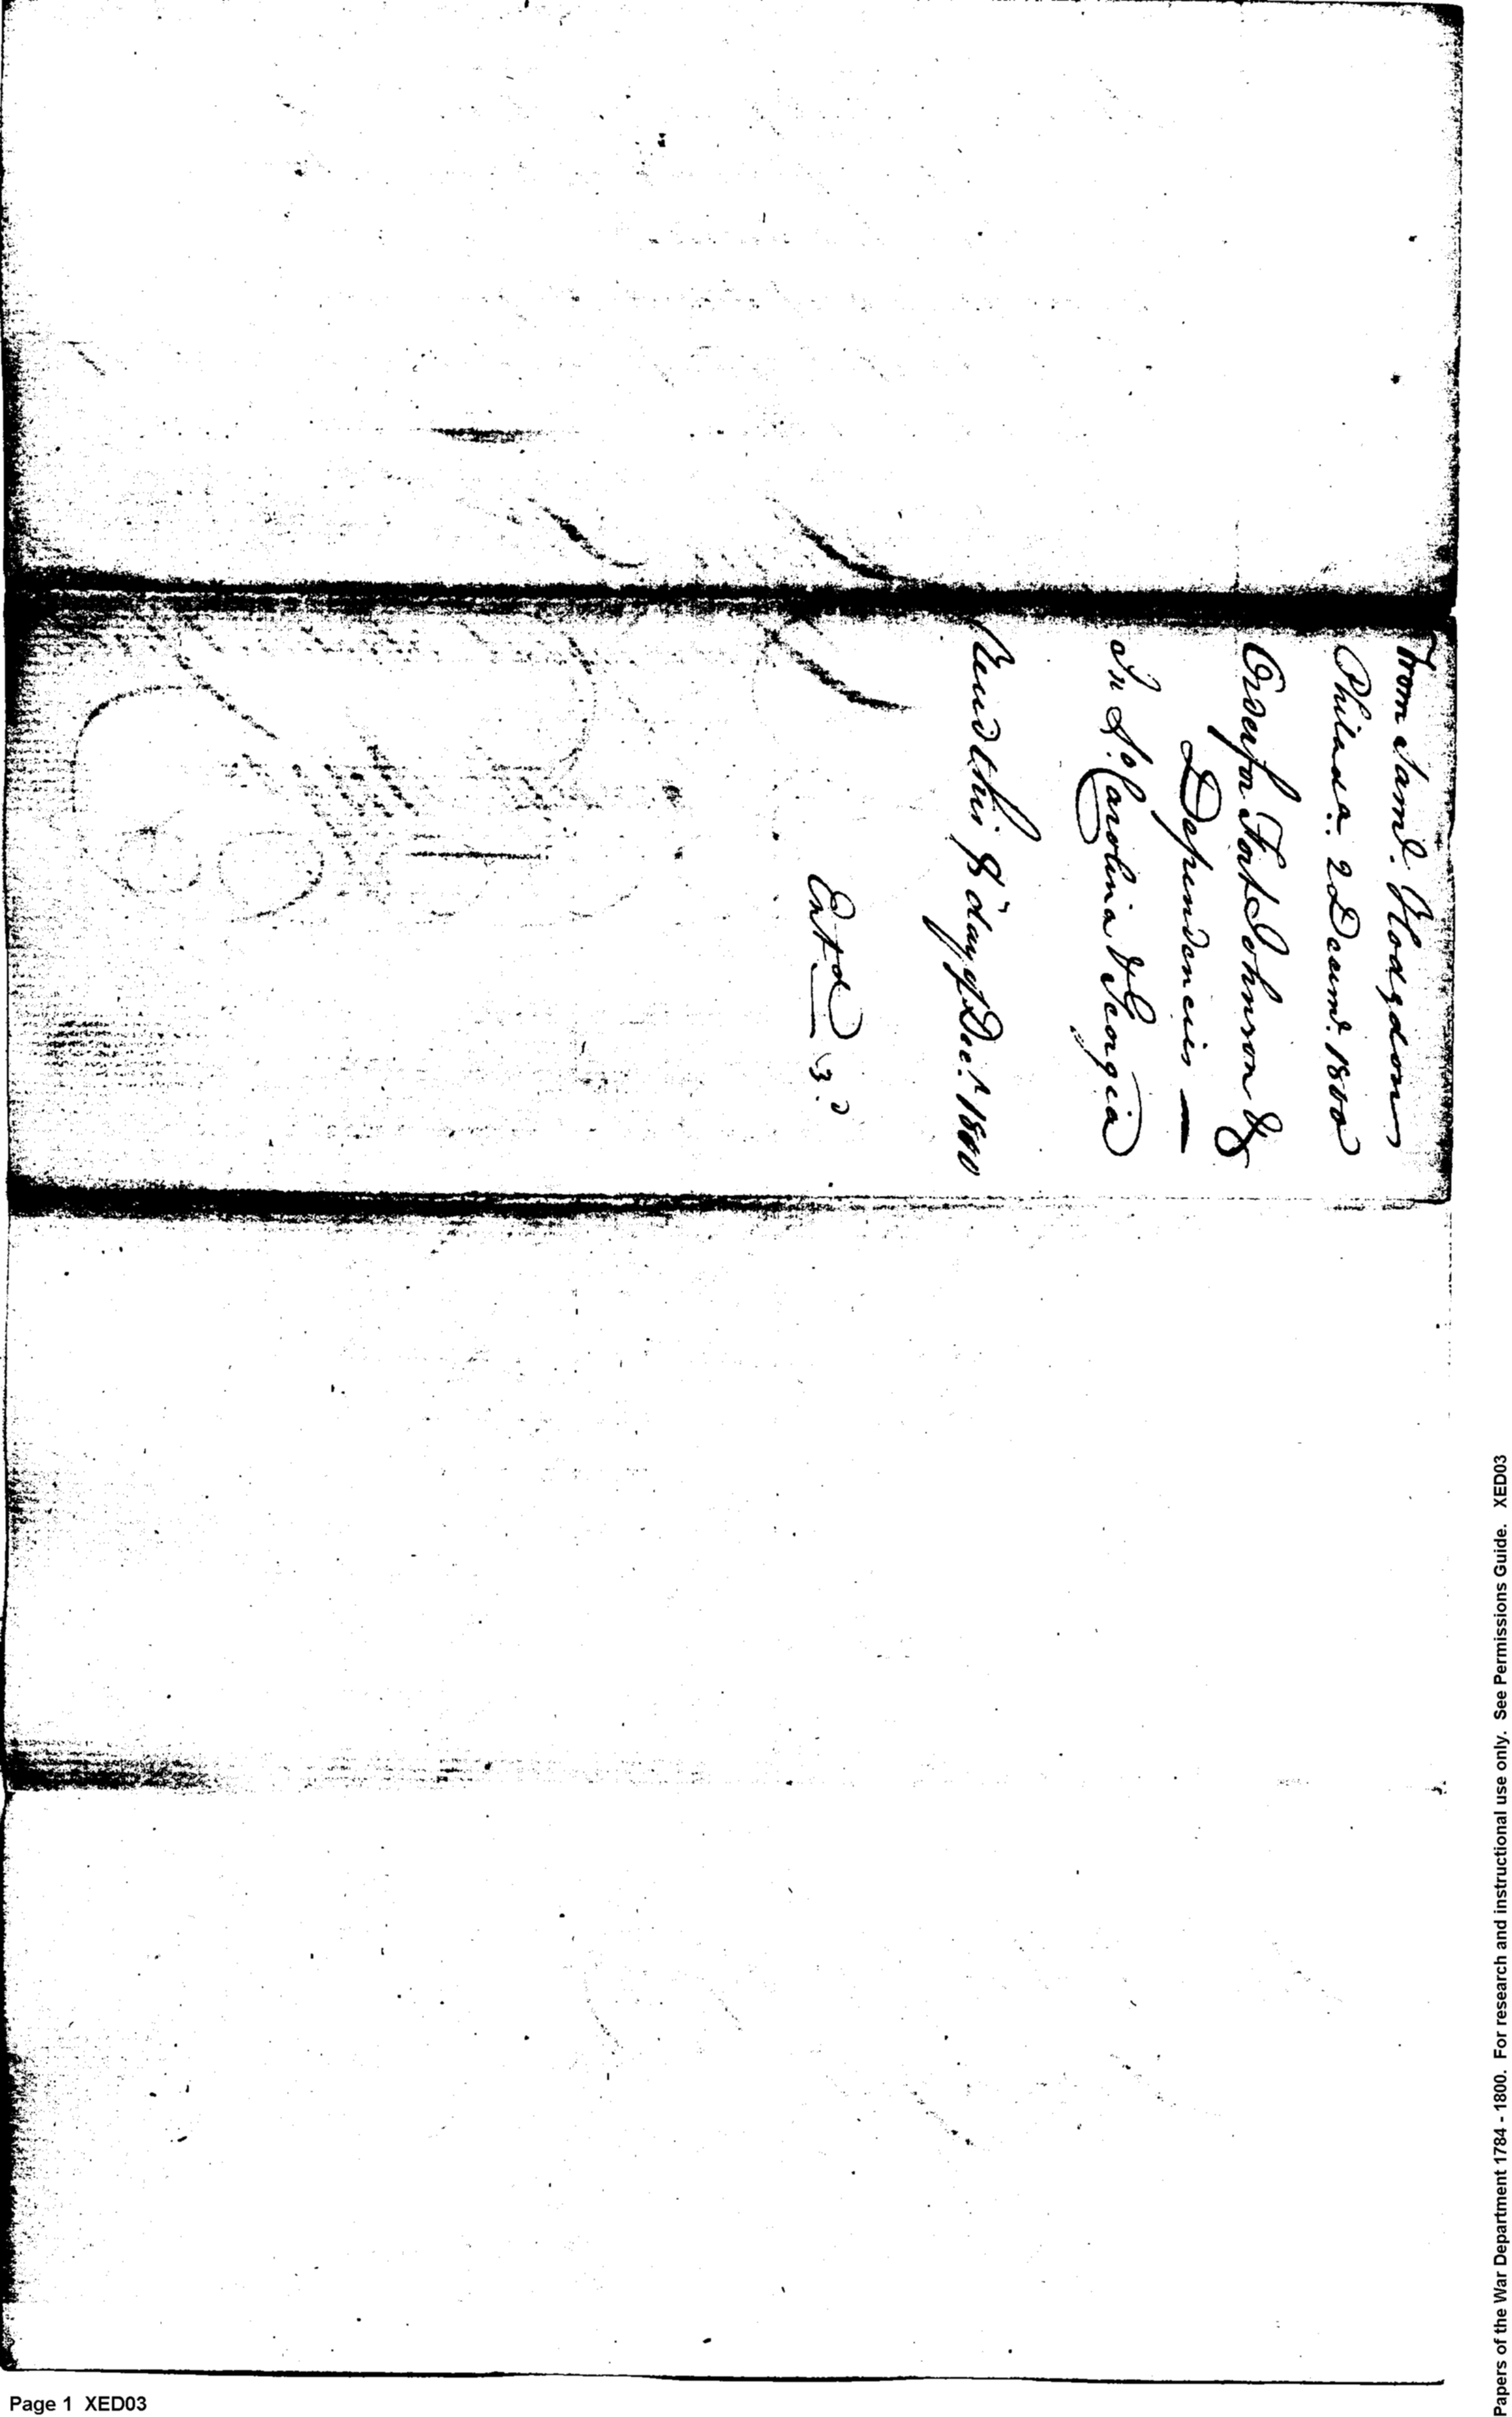 From Saml. Hodgdon
Philada. 2 Decemr. 1800
Order for Fort Johnson &
Dependencies —
In So. Carolina & Georgia
Recd this 8 day of Decr. 1800
Entd
Page 1 XED03
Papers of the War Department 1784 - 1800. For research and instructional use only. See Permissions Guide. XED03